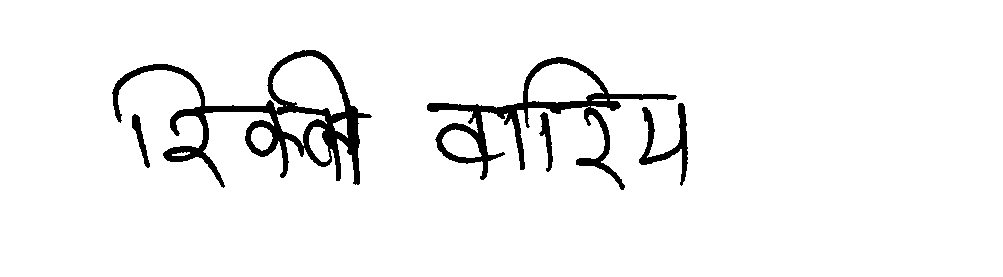 रिक्की वारिय